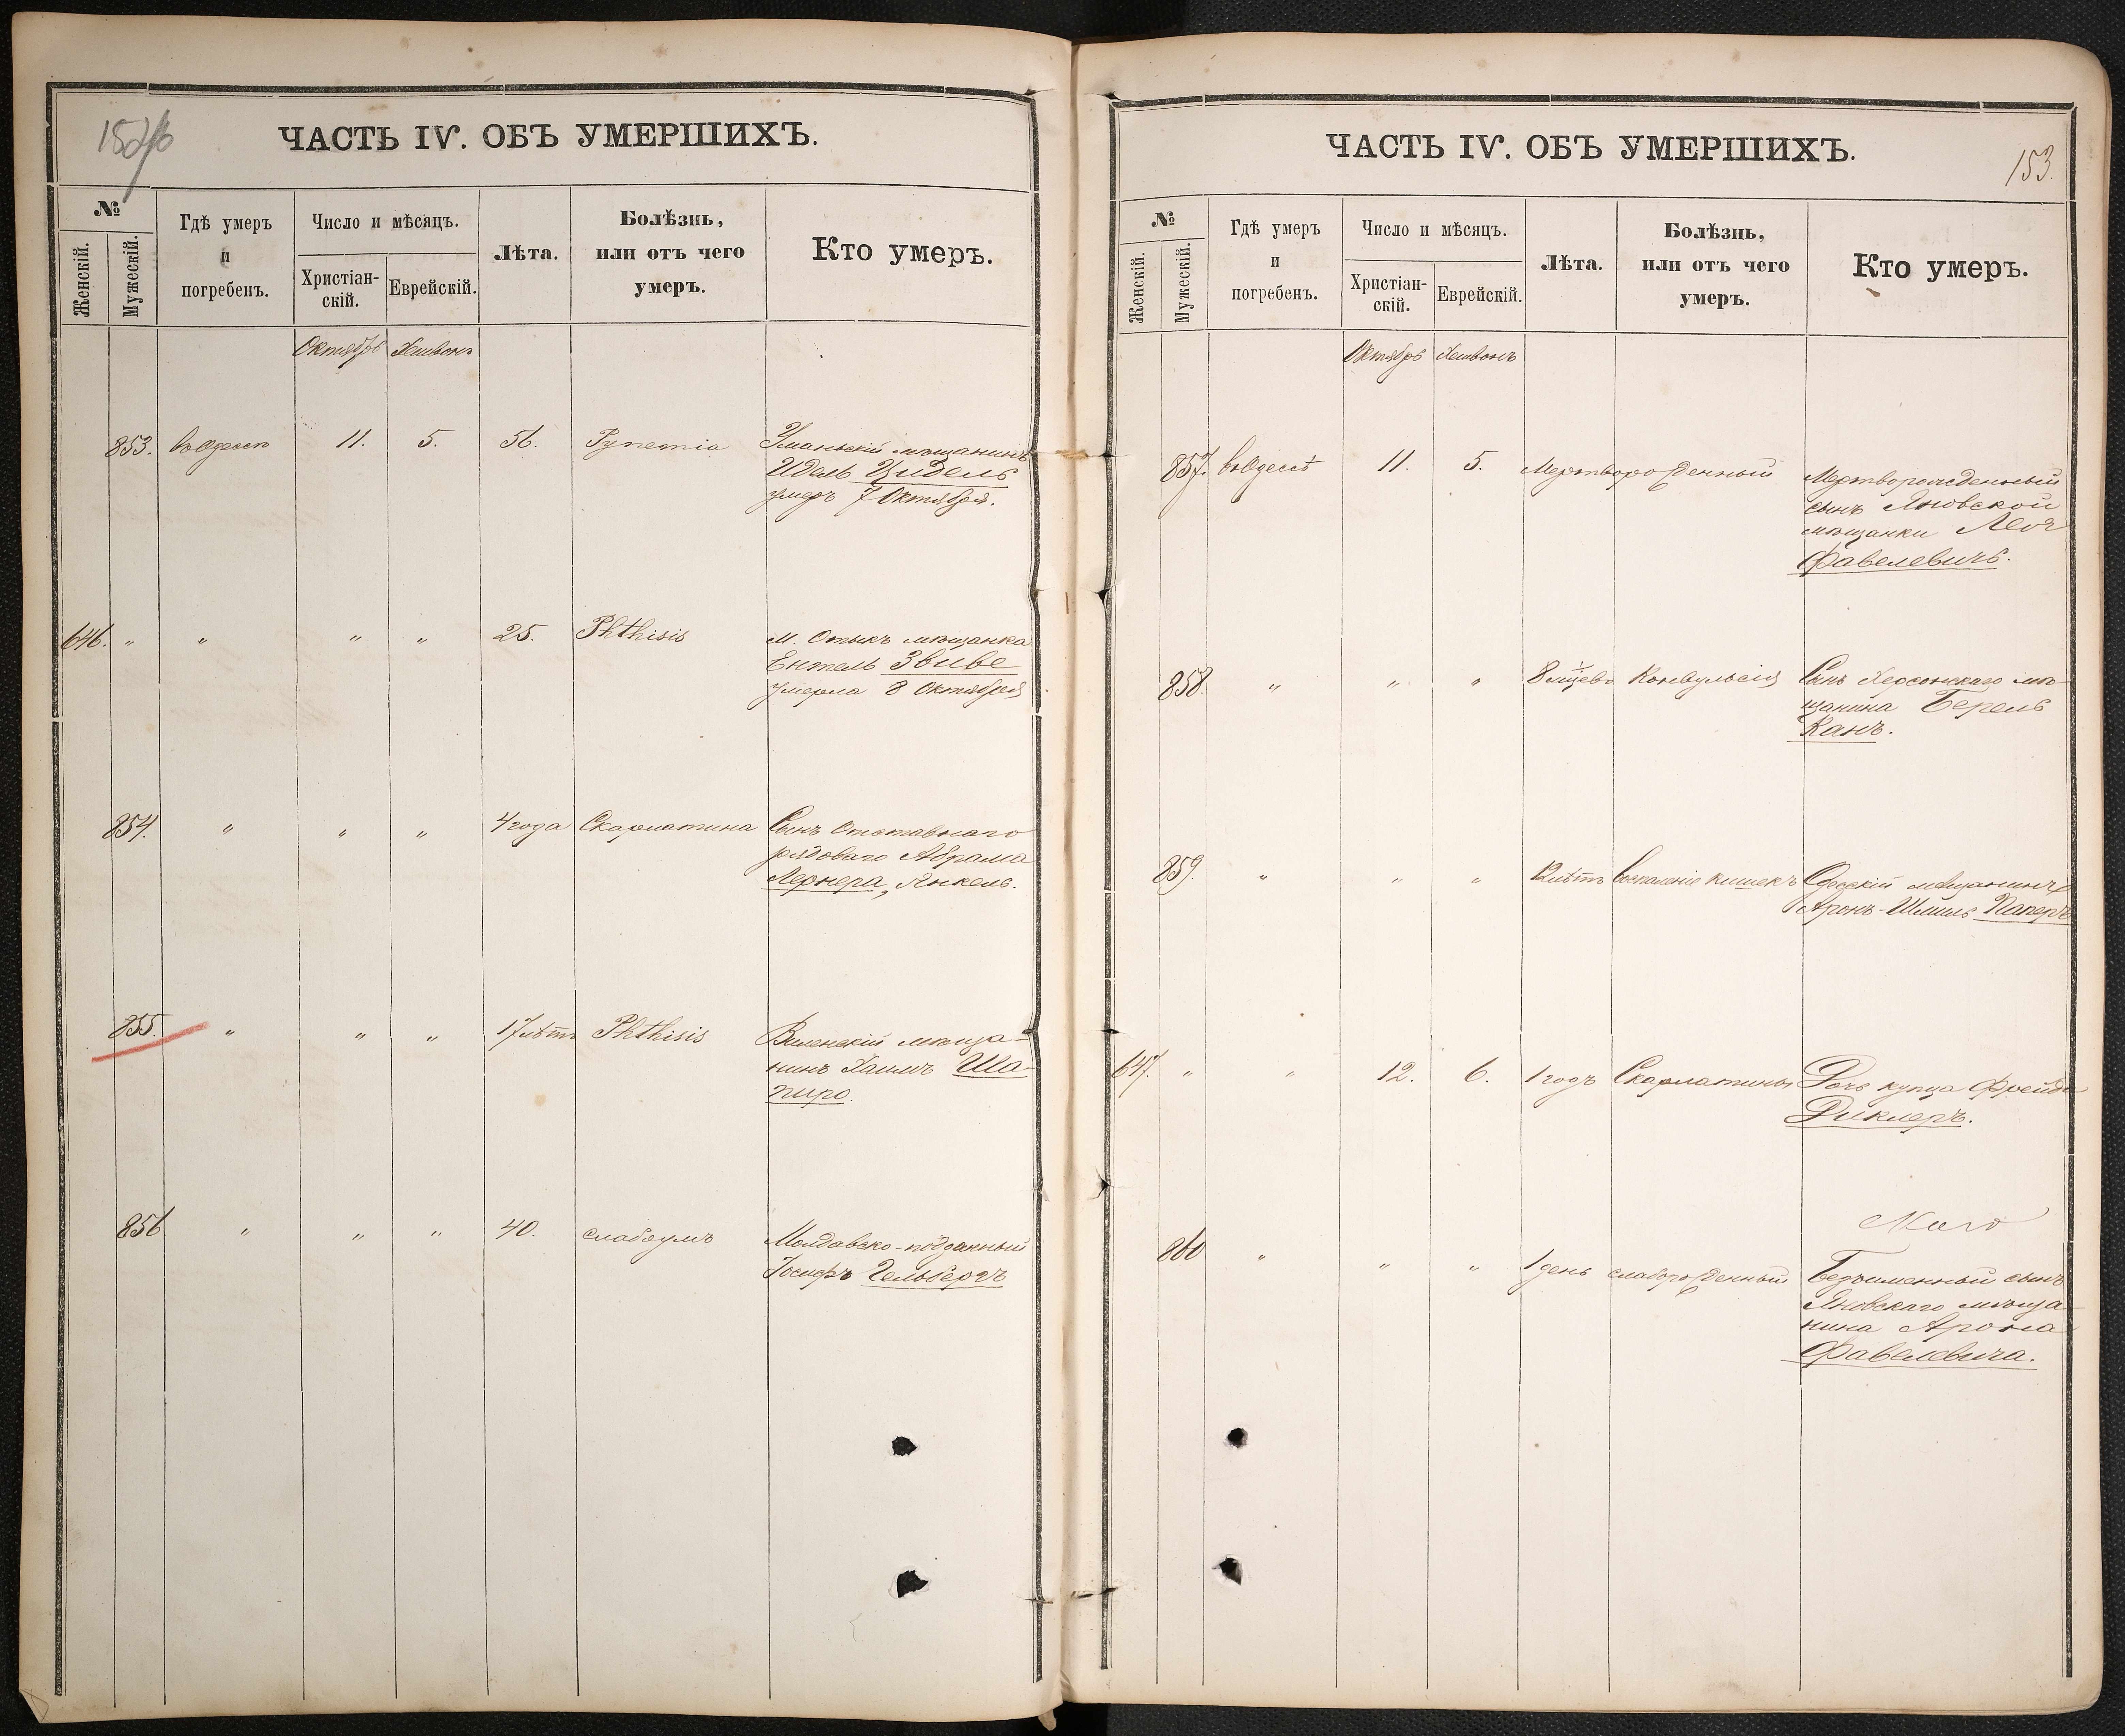 ЧАСТЬ IV. ОБЪ УМЕРШИХЪ.
№
Женскій.
Мужескій.
Гдѣ умеръ
и
погребенъ.
Число и мѣсяцъ.
Христіан-
скій.
Еврейскій.
Лѣта.
Болѣзнь,
или отъ чего
умеръ.
Кто умеръ.
Октябрь Хешвонъ
853. въ Одессѣ 11. 5. 56. Pynemia Уманьскій мѣщанинъ
Идель Цидель
умеръ 7 Октября.
646. " " " " 25. Phthisis м. Отыкъ мѣщанка
Ентель Звиве
умерла 8 Октября
854. " " " 4 года Скарлатина Сынъ Отставнаго
рядоваго Абрама
Лернера, Янкель.
855. " " " 17 лѣтъ Phthisis Виленскій мѣща-
нинъ Хаимъ Ша-
пиро.
856 " " " 40. слабоумъ Молдавско-подданный
Іосифъ Гельбергъ
ЧАСТЬ IV. ОБЪ УМЕРШИХЪ.
153.
№
Женскій.
Мужескій.
Гдѣ умеръ
и
погребенъ.
Число и мѣсяцъ.
Христіан-
скій.
Еврейскій.
Лѣта.
Болѣзнь,
или отъ чего
умеръ.
Кто умеръ.
Октябрь Хешвонъ
857. въ Одессѣ 11. 5. Мертворожденный Мертворожденный
сынъ Яновской
мѣщанки Леи
Фавелевичъ.
858. " " " 8 мѣсячн Конвульсія Сынъ Херсонскаго мѣ-
щанина Берель
Канъ.
859. " " " лѣтъ Воспаленіе кишекъ Одесскій мѣщанинъ
Аронъ-Шмиль Паперъ
647. " " 12. 6. 1 годъ Скарлатины Дочь купца Фрейда
Диклеръ.
860 " " " 1 день слаборожденный Безъименный сынъ
Яновскаго мѣща-
нина Арона
Фавелевича.